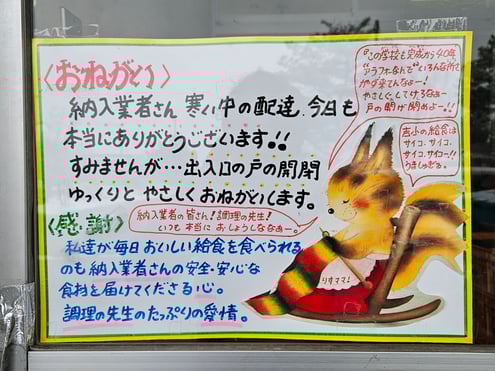 〈おねがい〉
納入業者さん 寒い中の配達、今日も
本当にありがとうございます!!
すみませんが…出入口の戸の開閉
ゆっくりと やさしくおねがいします。
〈感謝〉
納入業者の皆さん!調理の先生!
いつも本当に おしょうしななぁー。
私達が毎日 おいしい給食を食べられる
のも 納入業者さんの安全・安心な
食材を届けてくださる心。
調理の先生のたっぷりの愛情。
この学校も完成から40年
"アラフォーなんで"いろんな所
ガタ来てんなぁー!
やさしぐしてけろなぁー
戸の開け閉めよー!!
吉小の給食は
サイコ、サイコ、
サイコ、サイコー!!
うまいしゅぎる。
りすママ!